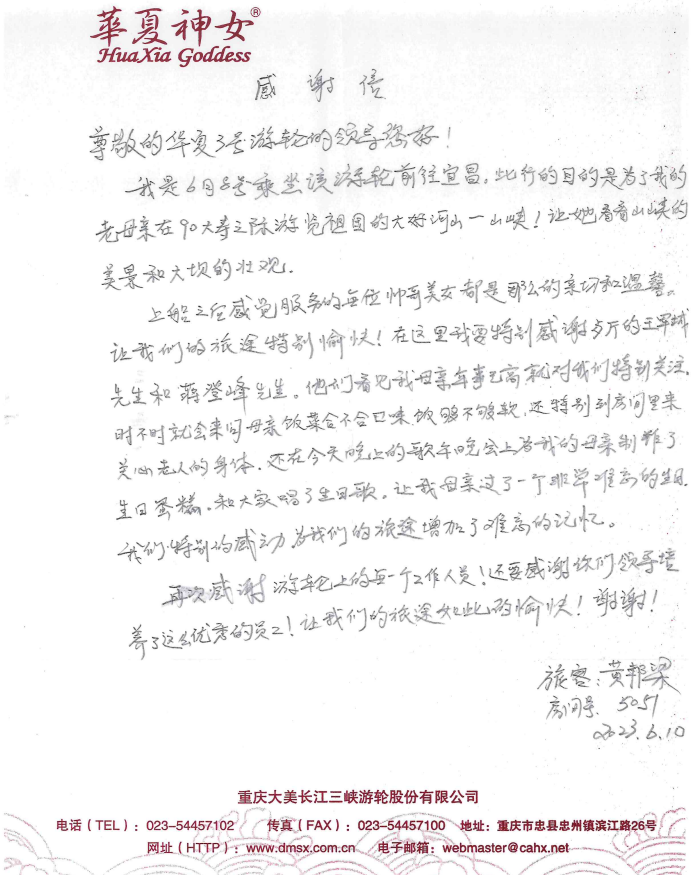 華夏神女®
HuaXia Goddess
感谢信
尊敬的华夏3号游轮的领导您好！
我是6月8号乘坐该游轮前往宜昌。此行的目的是为了我的
老母亲在90大寿之际游览祖国的大好河山一山峡！让她看看山峡的
美景和大坝的壮观.
上船之后感觉服务的每位帅哥美女都是那么的亲切和温馨。
让我们的旅途特别愉快！在这里我要特别感谢歺厅的王军
先生和蒋登峰先生。他们看见我母亲年事已高就对我们特别关注.
时不时就会来问母亲饭菜合不合口味饭够不够软.还特别到房间里来
关心老人的身体.还在今天晚上的歌午晚会上为我的母亲制作了
生日蛋糕.和大家唱了生日歌.让我母亲过了一个非常难忘的生日.
我们特别的感动.为我们的旅途增加了难忘的记忆。
再次感谢游轮上的每一个工作人员！还要感谢你们领导培
养了这么优秀的员工！让我们的旅途如此的愉快！谢谢！
旅客：黄邦梁
房间号. 5051
2023.6.10
重庆大美长江三峡游轮股份有限公司
电话（TEL）：023-54457102 传真（FAX）：023-54457100 地址：重庆市忠县忠州镇滨江路26号
网址（HTTP）：www.dmsx.com.cn 电子邮箱：webmaster@cahx.net